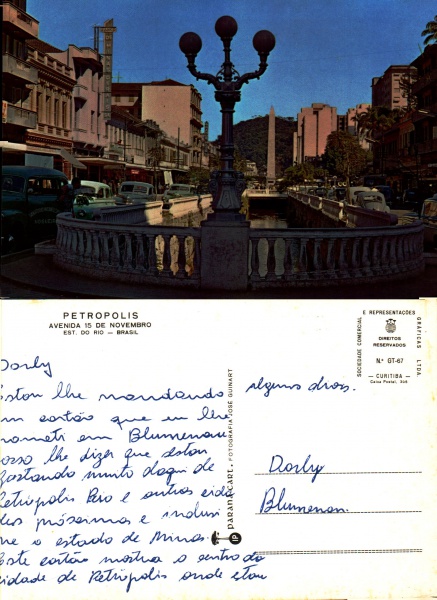 PETROPOLIS
AVENIDA 15 DE NOVEMBRO
EST. DO RIO — BRASIL
SOCIEDADE COMERCIAL E REPRESENTAÇÕES GRÁFICAS LTDA
DIREITOS RESERVADOS
N.º GT-67
— CURITIBA —
Caixa Postal, 358
PARANÁ CART. FOTOGRAFIA JOSÉ GUINART
Dorly
Estou lhe mandando
um cartão que eu lhe
prometi em Blumenau
posso lhe dizer que estou
gostando muito daqui de
Petrópolis e outras cida
des próximas e inclusi
ve o estado de Minas.
Este cartão mostra o centro da
cidade de Petrópolis onde estou
alguns dias.
Dorly
Blumenau.